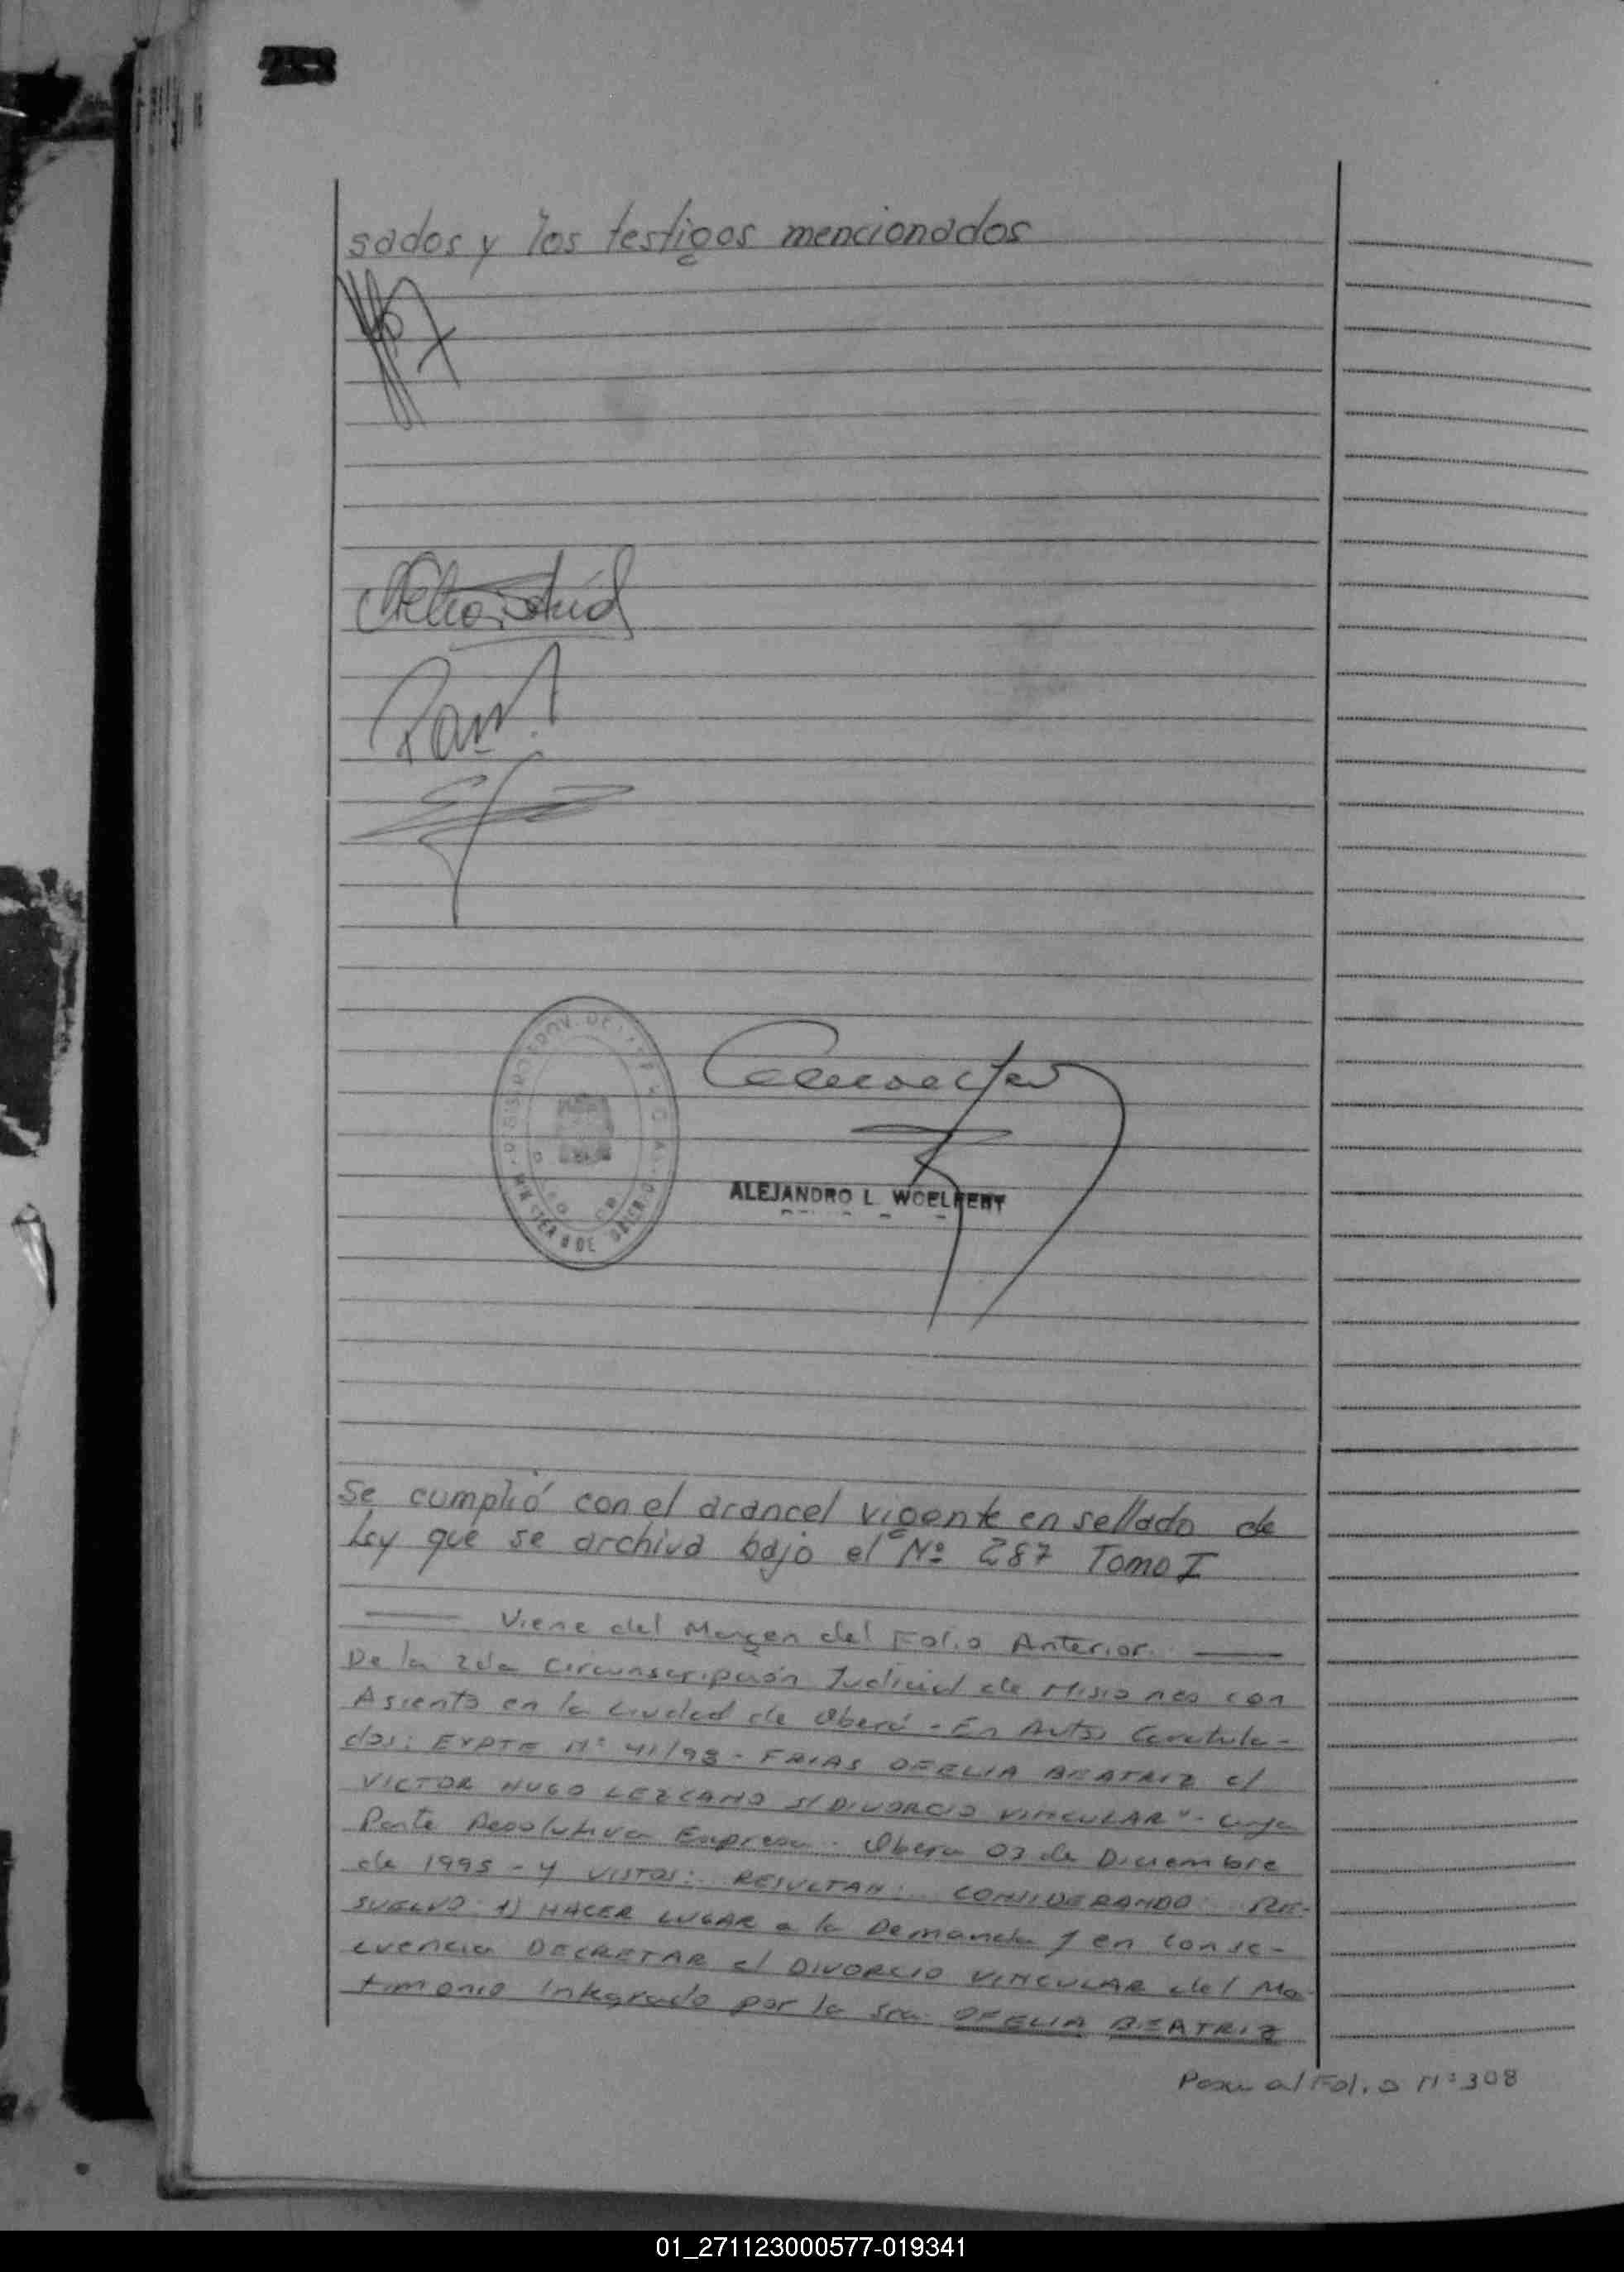 253
sados y los testigos mencionados
ALEJANDRO L. WOELFERT
Se cumplió con el arancel vigente en sellado de
Ley que se archiva bajo el Nº 287 Tomo I
Viene del Margen del Folio Anterior.
De la 2da Circunscripción Judicial de Misiones con
Asiento en la Ciudad de Oberá - En Autos Caratula-
dos: EXPTE Nº 41/98 - FRIAS OFELIA BEATRIZ c/
VICTOR HUGO LEZCANO S/ DIVORCIO VINCULAR" - Cuya
Parte Resolutiva Expresa: Oberá 03 de Diciembre
de 1995 - Y VISTOS: RESULTAN: CONSIDERANDO: RE-
SUELVO: 1) HACER LUGAR a la Demanda y en Conse-
cuencia DECRETAR el DIVORCIO VINCULAR del Ma-
trimonio Integrado por la Sra. OFELIA BEATRIZ
Pasa al Folio Nº 308
01_271123000577-019341